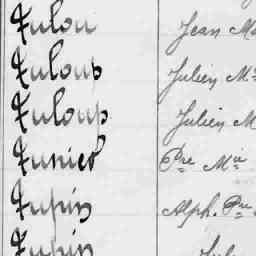 Fulou Jean Ma
Fuloup Julien M
Fuloup Julien M
Funier Pre Mie
Fupin Alph. Pre
Fupin